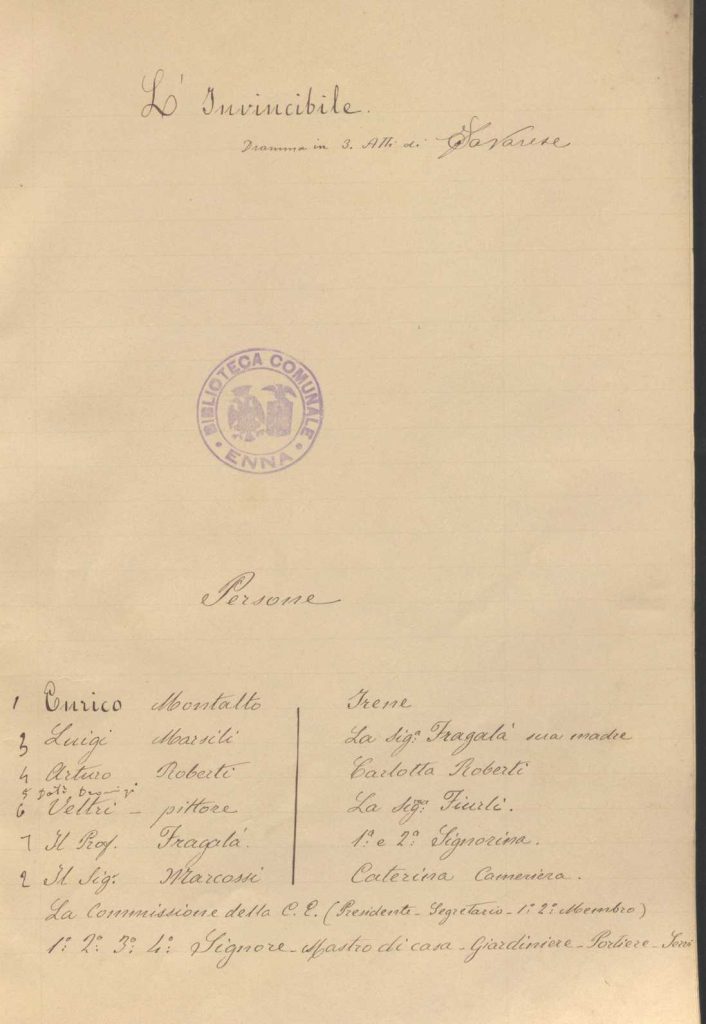 L' Invincibile.
Dramma in 3. Atti di Savarese
BIBLIOTECA COMUNALE
ENNA
Persone
1 Enrico Montalto
3 Luigi Marsili
4 Arturo Roberti
5 Dott.
6 Veltri - pittore
7 Il Prof. Fragalà.
2 Il Sig. Marcossi
Irene
La Sigª Fragalà sua madre
Carlotta Roberti
La Sigª Fiurli.
1ª e 2ª Signorina.
Caterina Cameriera.
La Commissione della C. E. (Presidente - Segretario - 1º 2º Membro)
1º 2º 3º 4º Signore - Mastro di casa - Giardiniere - Portiere -